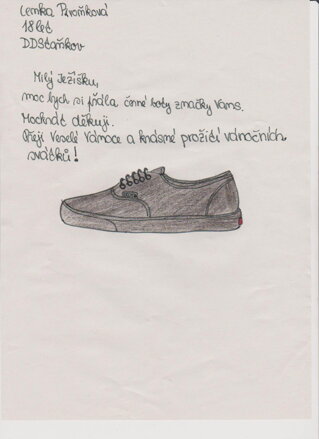 Lenka Pavoňková
18 let
DDStaňkov
Milý Ježíšku,
moc bych si přála černé boty značky Vans.
Mockrát děkuji.
Přeji Veselé Vánoce a krásné prožití vánočních
svátků!